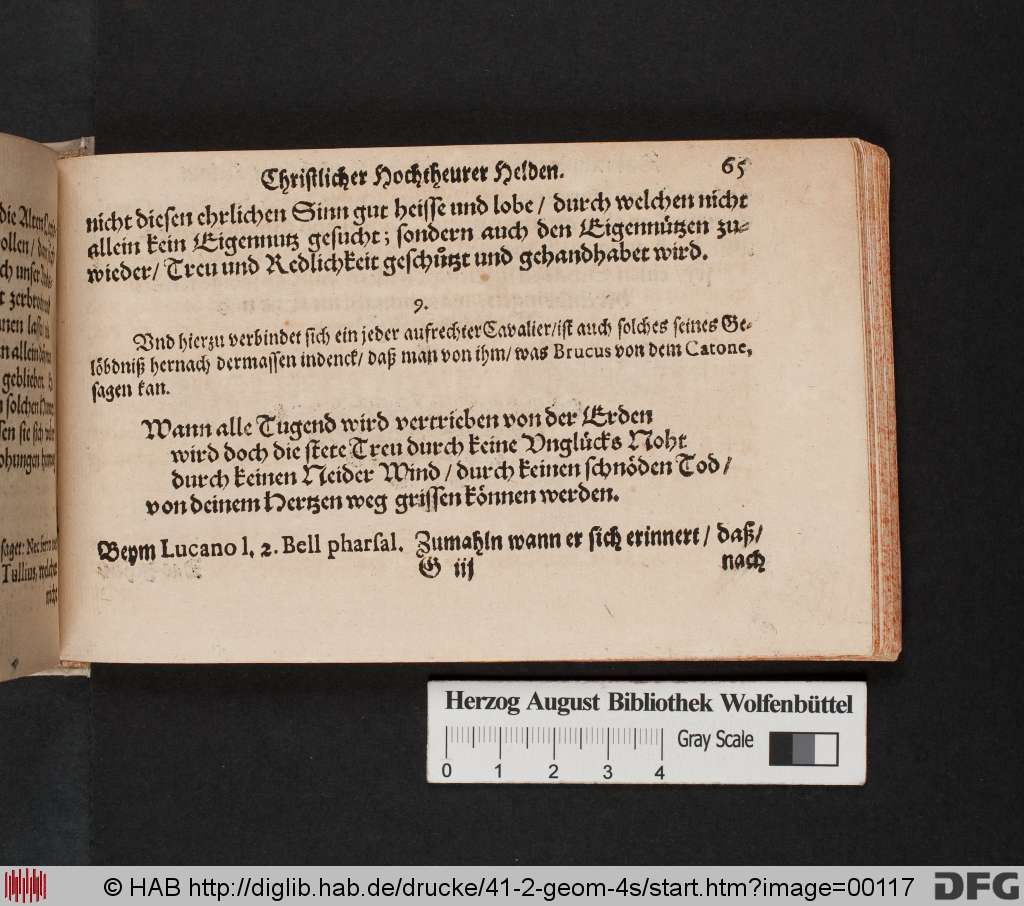 Christlicher Hochtheurer Helden. 65
nicht diesen ehrlichen Sinn gut heisse und lobe / durch welchen nicht
allein kein Eigennutz gesucht; sondern auch den Eigennützen zu-
wieder / Treu und Redlichkeit geschützt und gehandhabet wird.
9.
Vnd hierzu verbindet sich ein jeder aufrechter Cavalier / ist auch solches seines Ge-
löbdniß hernach dermassen indenck / daß man von ihm / was Brucus von dem Catone,
sagen kan.
Wann alle Tugend wird vertrieben von der Erden
wird doch die stete Treu durch keine Vnglücks Noht
durch keinen Neider Wind / durch keinen schnöden Tod /
von deinem Hertzen weg grissen können werden.
Beym Lucano l. 2. Bell pharsal. Zumahln wann er sich erinnert / daß /
G iij nach
die Alten
ollen /
ch unser
t zerbro
nen
n allein
geblieben
n solchen
sen sie sich
ohungen
saget: Nec
Tullius, welche
Herzog August Bibliothek Wolfenbüttel
0 1 2 3 4 Gray Scale
© HAB http://diglib.hab.de/drucke/41-2-geom-4s/start.htm?image=00117 DFG